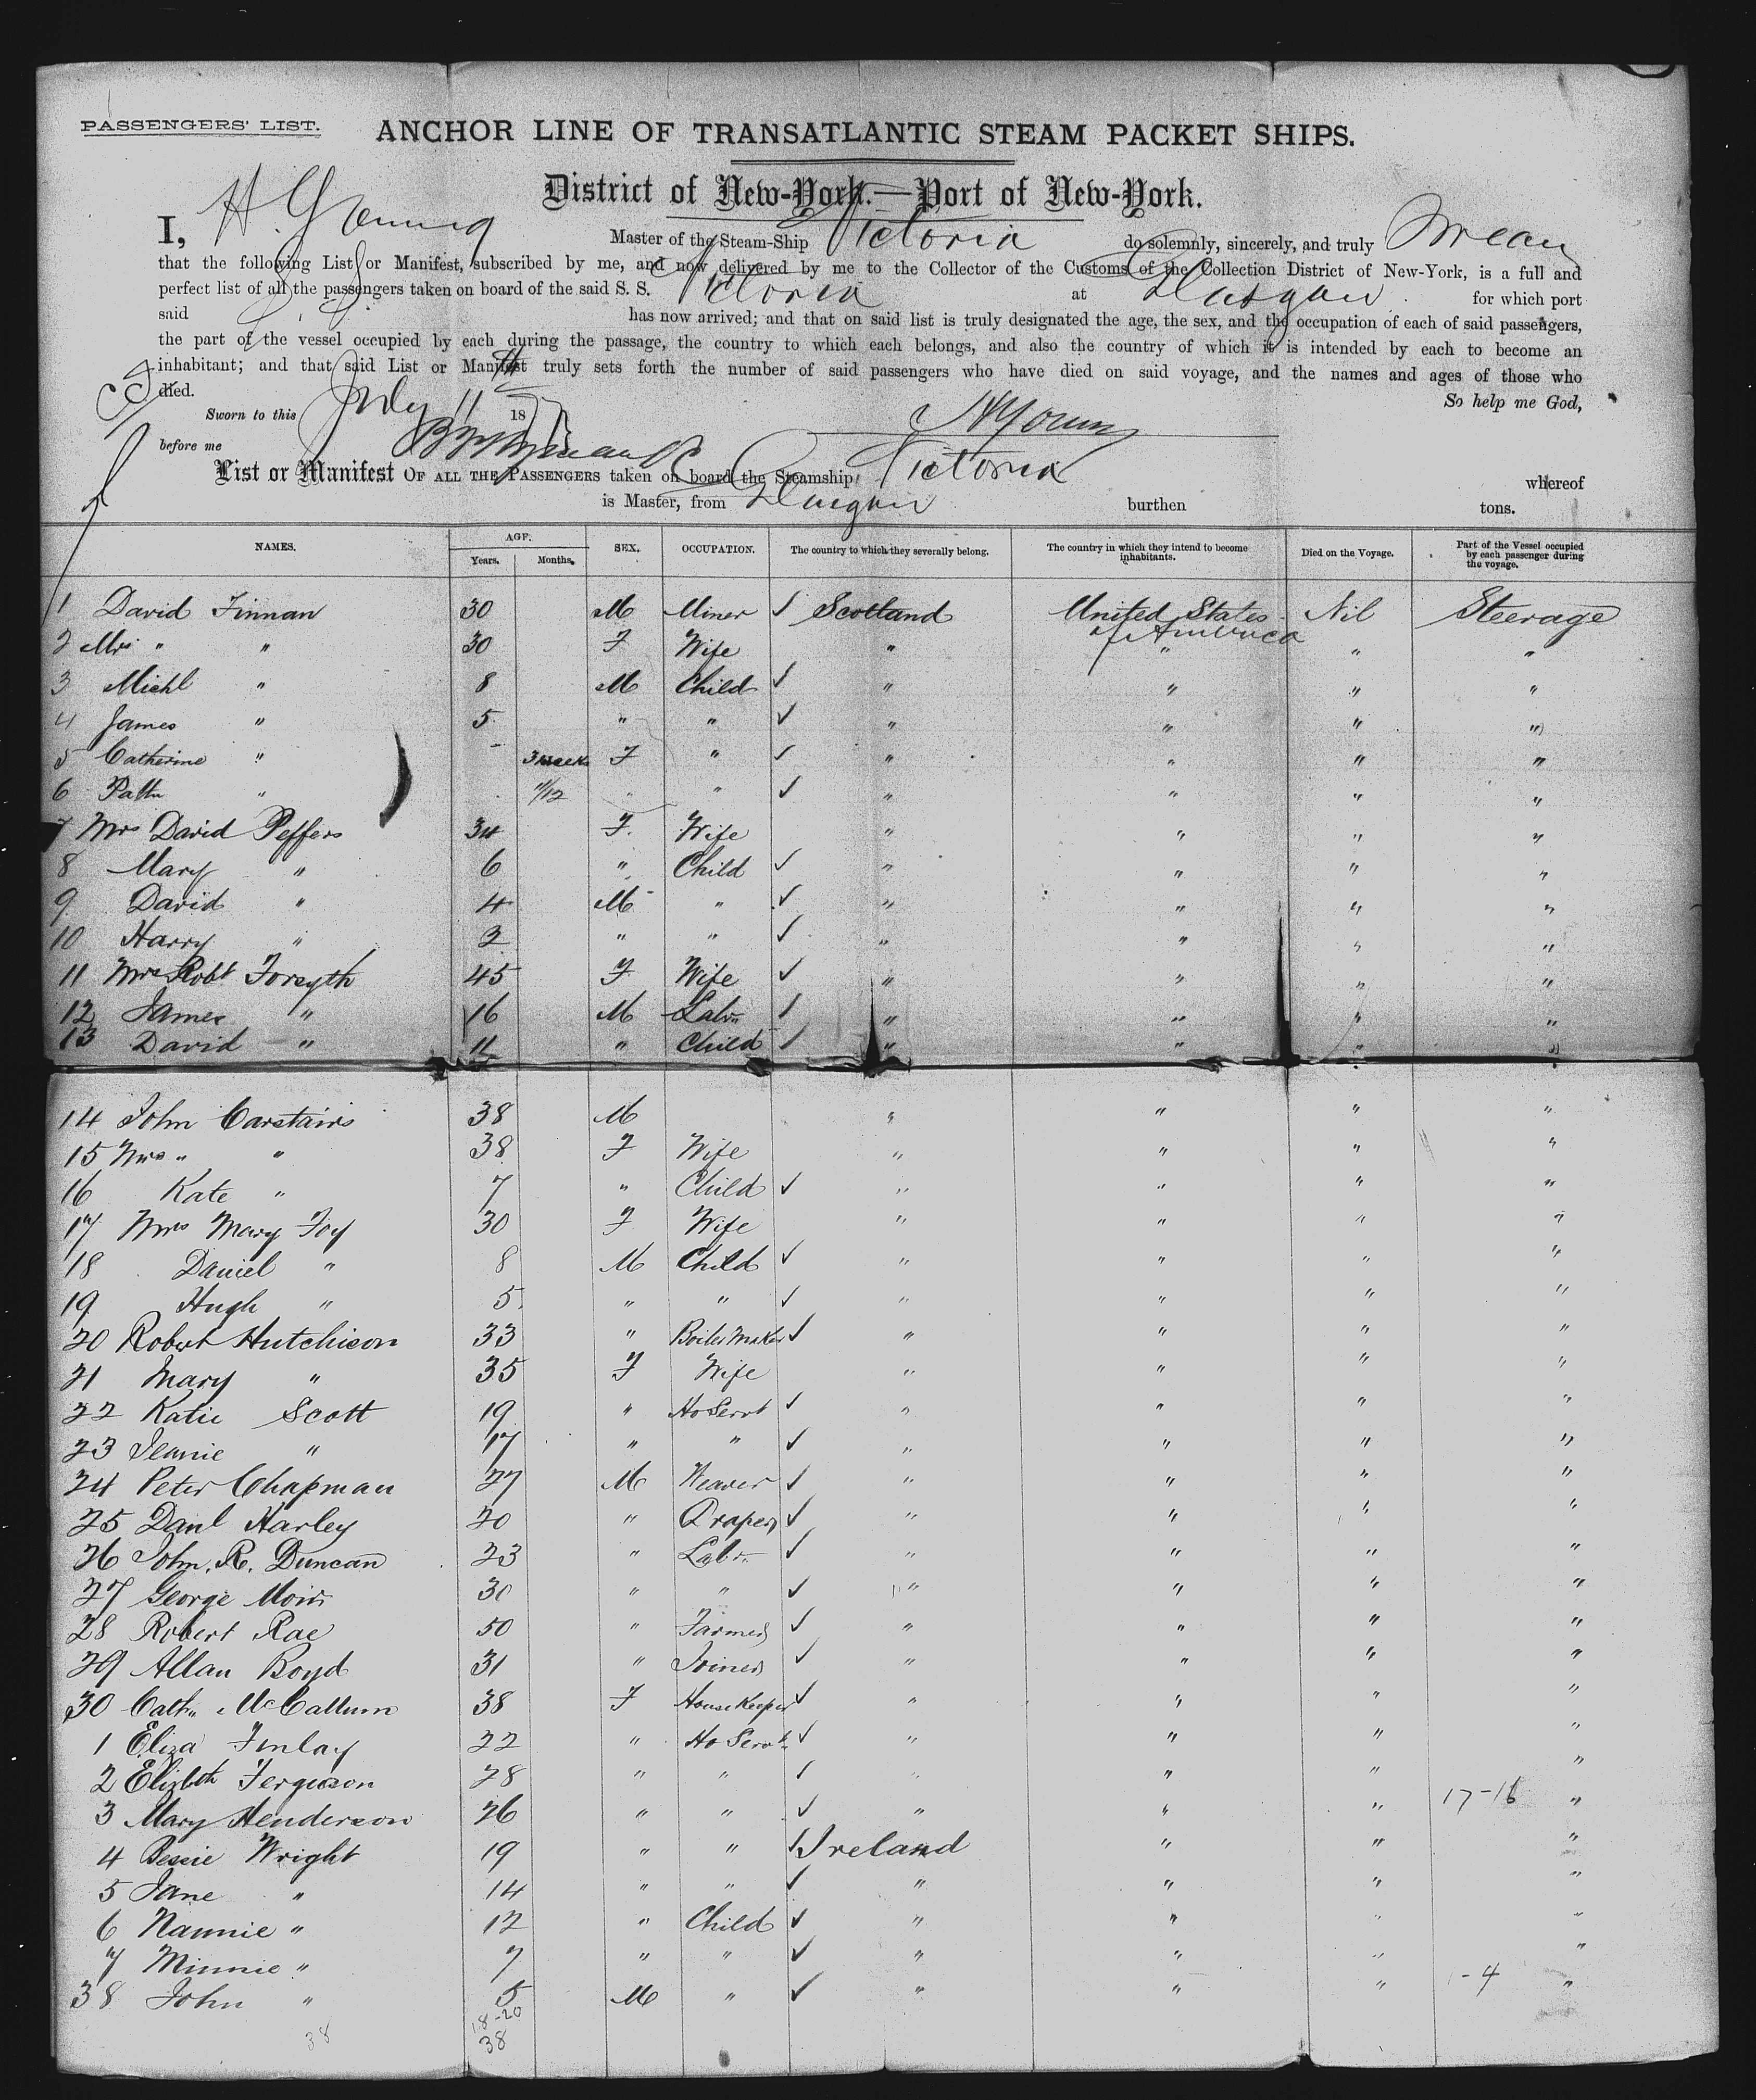 PASSENGERS' LIST.
ANCHOR LINE OF TRANSATLANTIC STEAM PACKET SHIPS.
District of New-York.—Port of New-York.
I, H. Young Master of the Steam-Ship Victoria do solemnly, sincerely, and truly Swear
that the following List or Manifest, subscribed by me, and now delivered by me to the Collector of the Customs of the Collection District of New-York, is a full and
perfect list of all the passengers taken on board of the said S. S. Victoria at Glasgow for which port
said has now arrived; and that on said list is truly designated the age, the sex, and the occupation of each of said passengers,
the part of the vessel occupied by each during the passage, the country to which each belongs, and also the country of which it is intended by each to become an
inhabitant; and that said List or Manifest truly sets forth the number of said passengers who have died on said voyage, and the names and ages of those who
died. So help me God,
Sworn to this July 11th 1877 HYoung
before me
List or Manifest OF ALL THE PASSENGERS taken on board the Steamship Victoria whereof
is Master, from Glasgow burthen tons.
NAMES. AGE. Years. Months. SEX. OCCUPATION. The country to which they severally belong. The country in which they intend to become inhabitants. Died on the Voyage. Part of the Vessel occupied by each passenger during the voyage.
1 David Finnan 30 M Miner ✓ Scotland United States of America Nil Steerage
2 Mrs " " 30 F Wife " " " "
3 Michl " 8 M Child ✓ " " " "
4 James " 5 " " ✓ " " " "
5 Catherine " - 3 weeks F " ✓ " " " "
6 " 11/12 " " ✓ " " " "
7 Mrs David Peffers 34 F. Wife " " " "
8 Mary " 6 " Child ✓ " " " "
9 David " 4 M " ✓ " " " "
10 Harry " 2 " " ✓ " " " "
11 Mrs Robt Forsyth 45 F Wife ✓ " " " "
12 James " 16 M Labr ✓ " " " "
13 David " 11 " Child ✓ " " " "
14 John Carstairs 38 M " " " "
15 Mrs " " 38 F Wife " " " "
16 Kate " 7 " Child ✓ " " " "
17 Mrs Mary Foy 30 F Wife " " " "
18 Daniel " 8 M Child ✓ " " " "
19 Hugh " 5 " " ✓ " " " "
20 Robert Hutchison 33 " Boiler Maker ✓ " " " "
21 Mary " 35 F Wife " " " "
22 Katie Scott 19 " Ho Servt ✓ " " " "
23 Jeanie " 17 " " ✓ " " " "
24 Peter Chapman 27 M Weaver ✓ " " " "
25 Danl Harley 20 " Draper ✓ " " " "
26 John. R. Duncan 23 " Labr ✓ " " " "
27 George Moir 30 " " ✓ " " " "
28 Robert Rae 50 " Farmer ✓ " " " "
29 Allan Boyd 31 " Joiner ✓ " " " "
30 Cathn McCallum 38 F House Keeper ✓ " " " "
1 Eliza Finlay 22 " Ho Servt ✓ " " " "
2 Elizbth Ferguson 28 " " ✓ " " " "
3 Mary Henderson 26 " " ✓ " " " 17-16 "
4 Bessie Wright 19 " " ✓ Ireland " " "
5 Jane " 14 " " ✓ " " " "
6 Nannie " 12 " Child ✓ " " " "
7 Minnie " 7 " " ✓ " " " "
38 John " 5 M " ✓ " " " 1-4 "
18-20
38 38